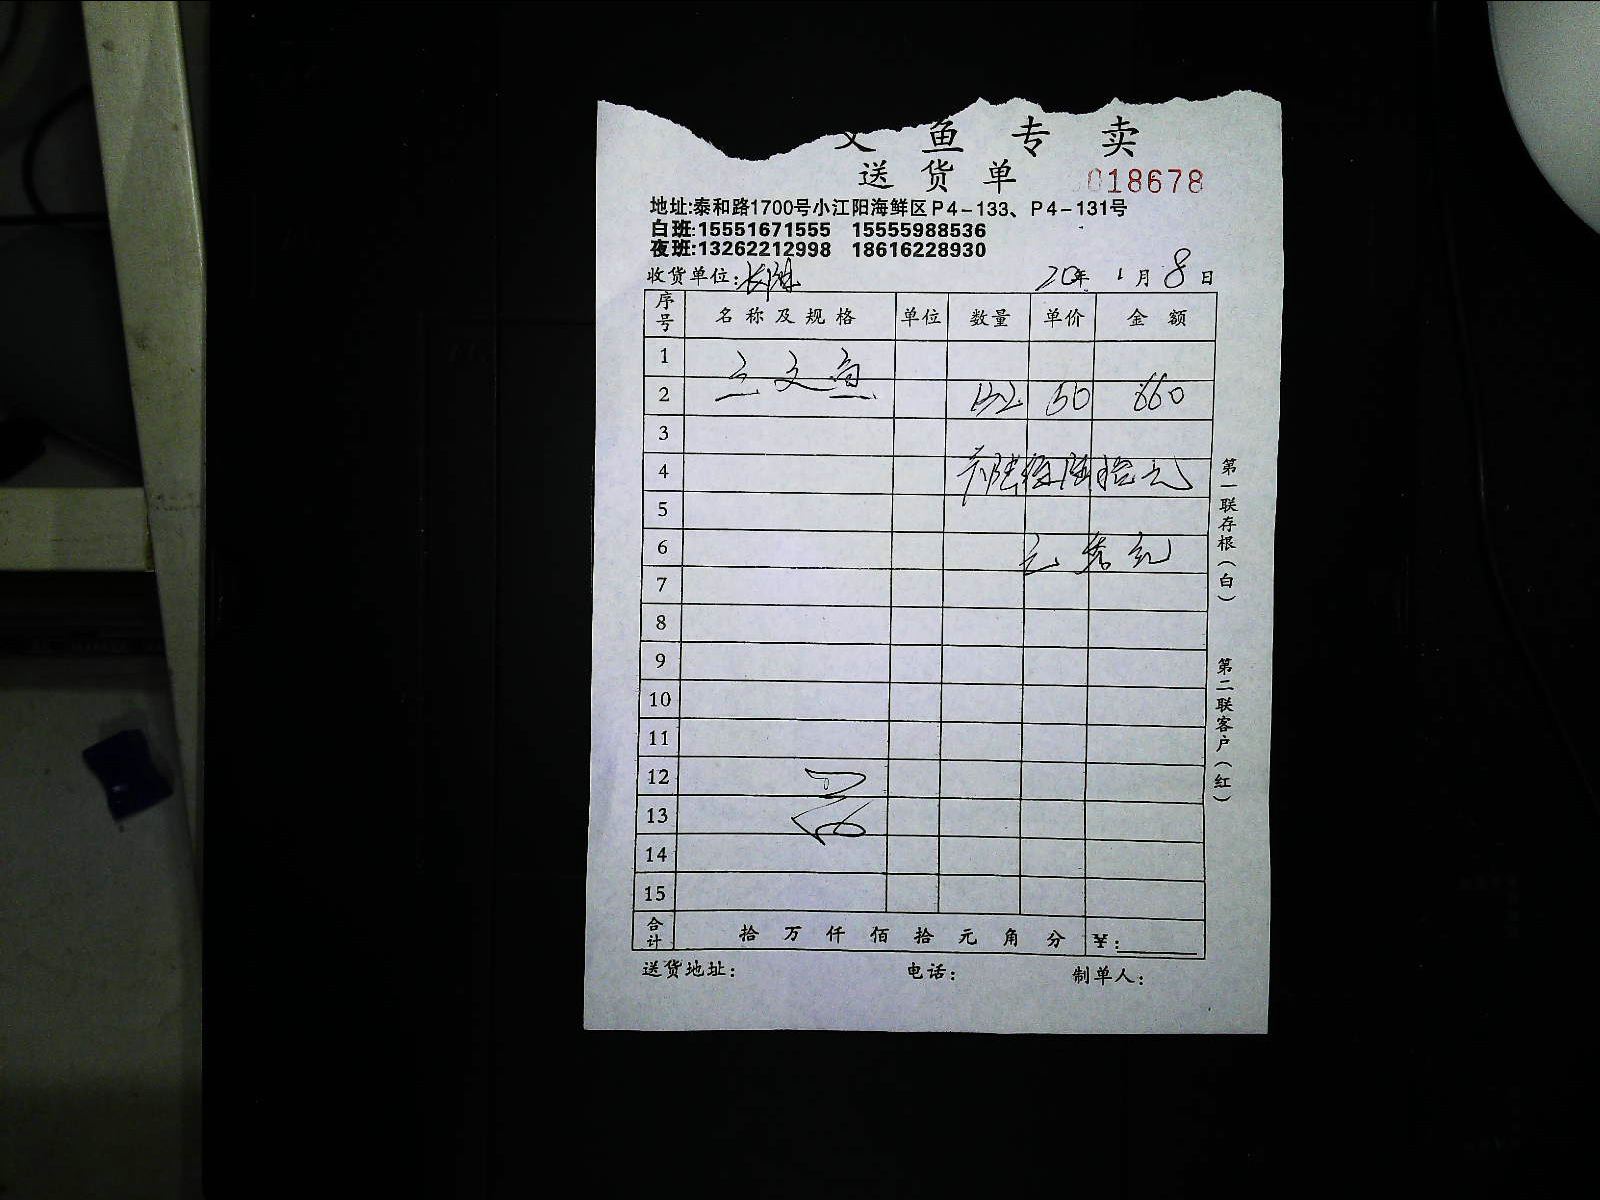 文 鱼 专 卖
送 货 单 018678
地址:泰和路1700号小江阳海鲜区P4-133、P4-131号
白班:15551671555 15555988536
夜班:13262212998 18616228930
收货单位: 20年 1月 8日
序号 名称及规格 单位 数量 单价 金额
1 三文鱼
2 132 50 660
3
4 陆佰陆拾元
5
6
7
8
9
10
11
12
13
14
15
合计 拾 万 仟 佰 拾 元 角 分 ¥:
送货地址: 电话: 制单人:
第一联存根(白)
第二联客户(红)